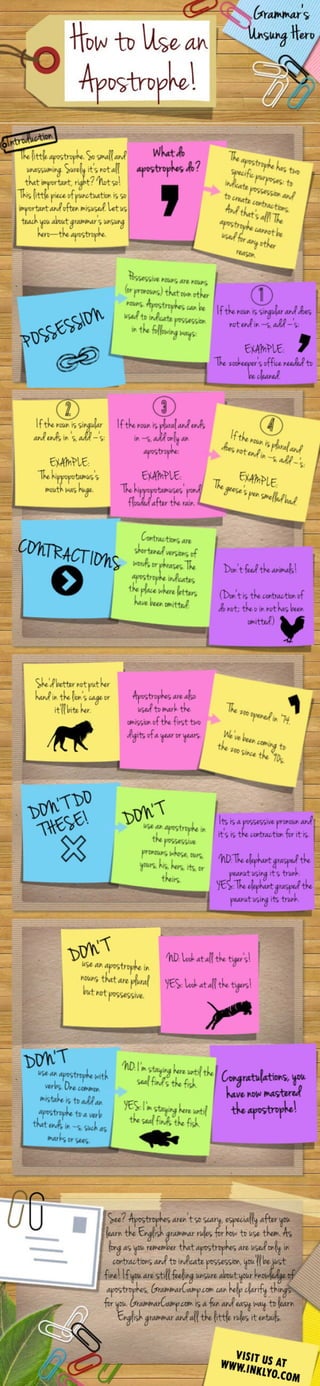 Grammar's
Unsung Hero
How to Use an
Apostrophe!
Introduction
The little apostrophe. So small and
unassuming. Surely it's not all
that important, right? Not so!
This little piece of punctuation is so
important and often misused. Let us
teach you about grammar's unsung
hero—the apostrophe.
What do
apostrophes do?
The apostrophe has two
specific purposes: to
indicate possession and
to create contractions.
And that's all! The
apostrophe cannot be
used for any other
reason.
POSSESSION
Possessive nouns are nouns
(or pronouns) that own other
nouns. Apostrophes can be
used to indicate possession
in the following ways:
1
If the noun is singular and does
not end in -s, add -'s:
EXAMPLE:
The zookeeper's office needed to
be cleaned.
2
If the noun is singular
and ends in 's, add -'s:
EXAMPLE:
The hippopotamus's
mouth was huge.
3
If the noun is plural and ends
in -s, add only an
apostrophe:
EXAMPLE:
The hippopotamuses' pond
flooded after the rain.
4
If the noun is plural and
does not end in -s, add -'s:
EXAMPLE:
The geese's pen smelled bad.
CONTRACTIONS
Contractions are
shortened versions of
words or phrases. The
apostrophe indicates
the place where letters
have been omitted.
Don't feed the animals!
(Don't is the contraction of
do not; the o in not has been
omitted.)
She'd better not put her
hand in the lion's cage or
it'll bite her.
Apostrophes are also
used to mark the
omission of the first two
digits of a year or years.
The zoo opened in '74.
We've been coming to
the zoo since the '70s.
DON'T DO
THESE!
DON'T
use an apostrophe in
the possessive
pronouns whose, ours,
yours, his, hers, its, or
theirs.
Its is a possessive pronoun and
it's is the contraction for it is.
NO: The elephant grasped the
peanut using it's trunk.
YES: The elephant grasped the
peanut using its trunk.
DON'T
use an apostrophe in
nouns that are plural
but not possessive.
NO: Look at all the tiger's!
YES: Look at all the tigers!
DON'T
use an apostrophe with
verbs. One common
mistake is to add an
apostrophe to a verb
that ends in -s, such as
marks or sees.
NO: I'm staying here until the
seal find's the fish.
YES: I'm staying here until
the seal finds the fish.
Congratulations, you
have now mastered
the apostrophe!
See? Apostrophes aren't so scary, especially after you
learn the English grammar rules for how to use them. As
long as you remember that apostrophes are used only in
contractions and to indicate possession, you'll be just
fine! If you are still feeling unsure about your knowledge of
apostrophes, GrammarCamp.com can help clarify things
for you. GrammarCamp.com is a fun and easy way to learn
English grammar and all the little rules it entails.
VISIT US AT
WWW.INKLYO.COM